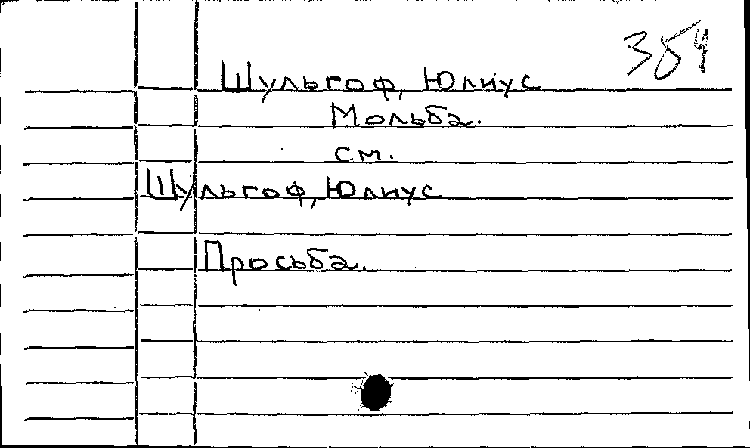 354
Шульгоф, Юлиус
Мольба.
см.
Шульгоф, Юлиус
Просьба.